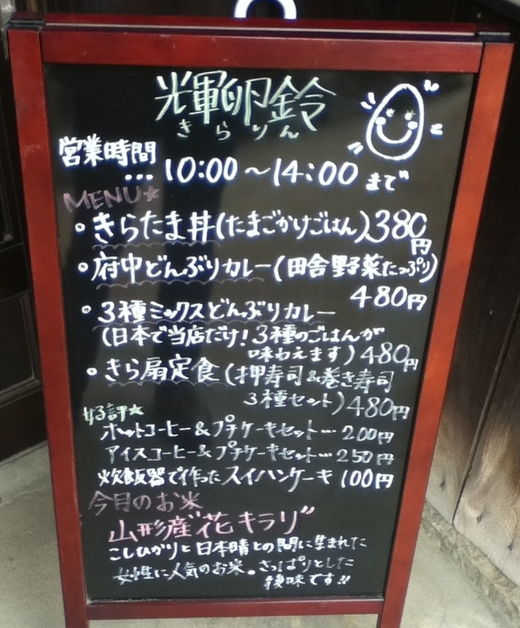 光輝卵鈴
きらりん
営業時間
…10:00～14:00まで
MENU★
・きらたま丼(たまごかけごはん)380円
・府中どんぶりカレー(田舎野菜たっぷり)
480円
・3種ミックスどんぶりカレー
(日本で当店だけ!3種のごはんが
味わえます)480円
・きら扇定食(押寿司&巻き寿司
3種セット)480円
好評★
ホットコーヒー&プチケーキセット…200円
アイスコーヒー&プチケーキセット…250円
炊飯器で作ったスイハンケーキ100円
今月のお米
山形産"花キラリ"
こしひかりと日本晴との間に生まれた
女性に人気のお米。さっぱりとした
味です!!